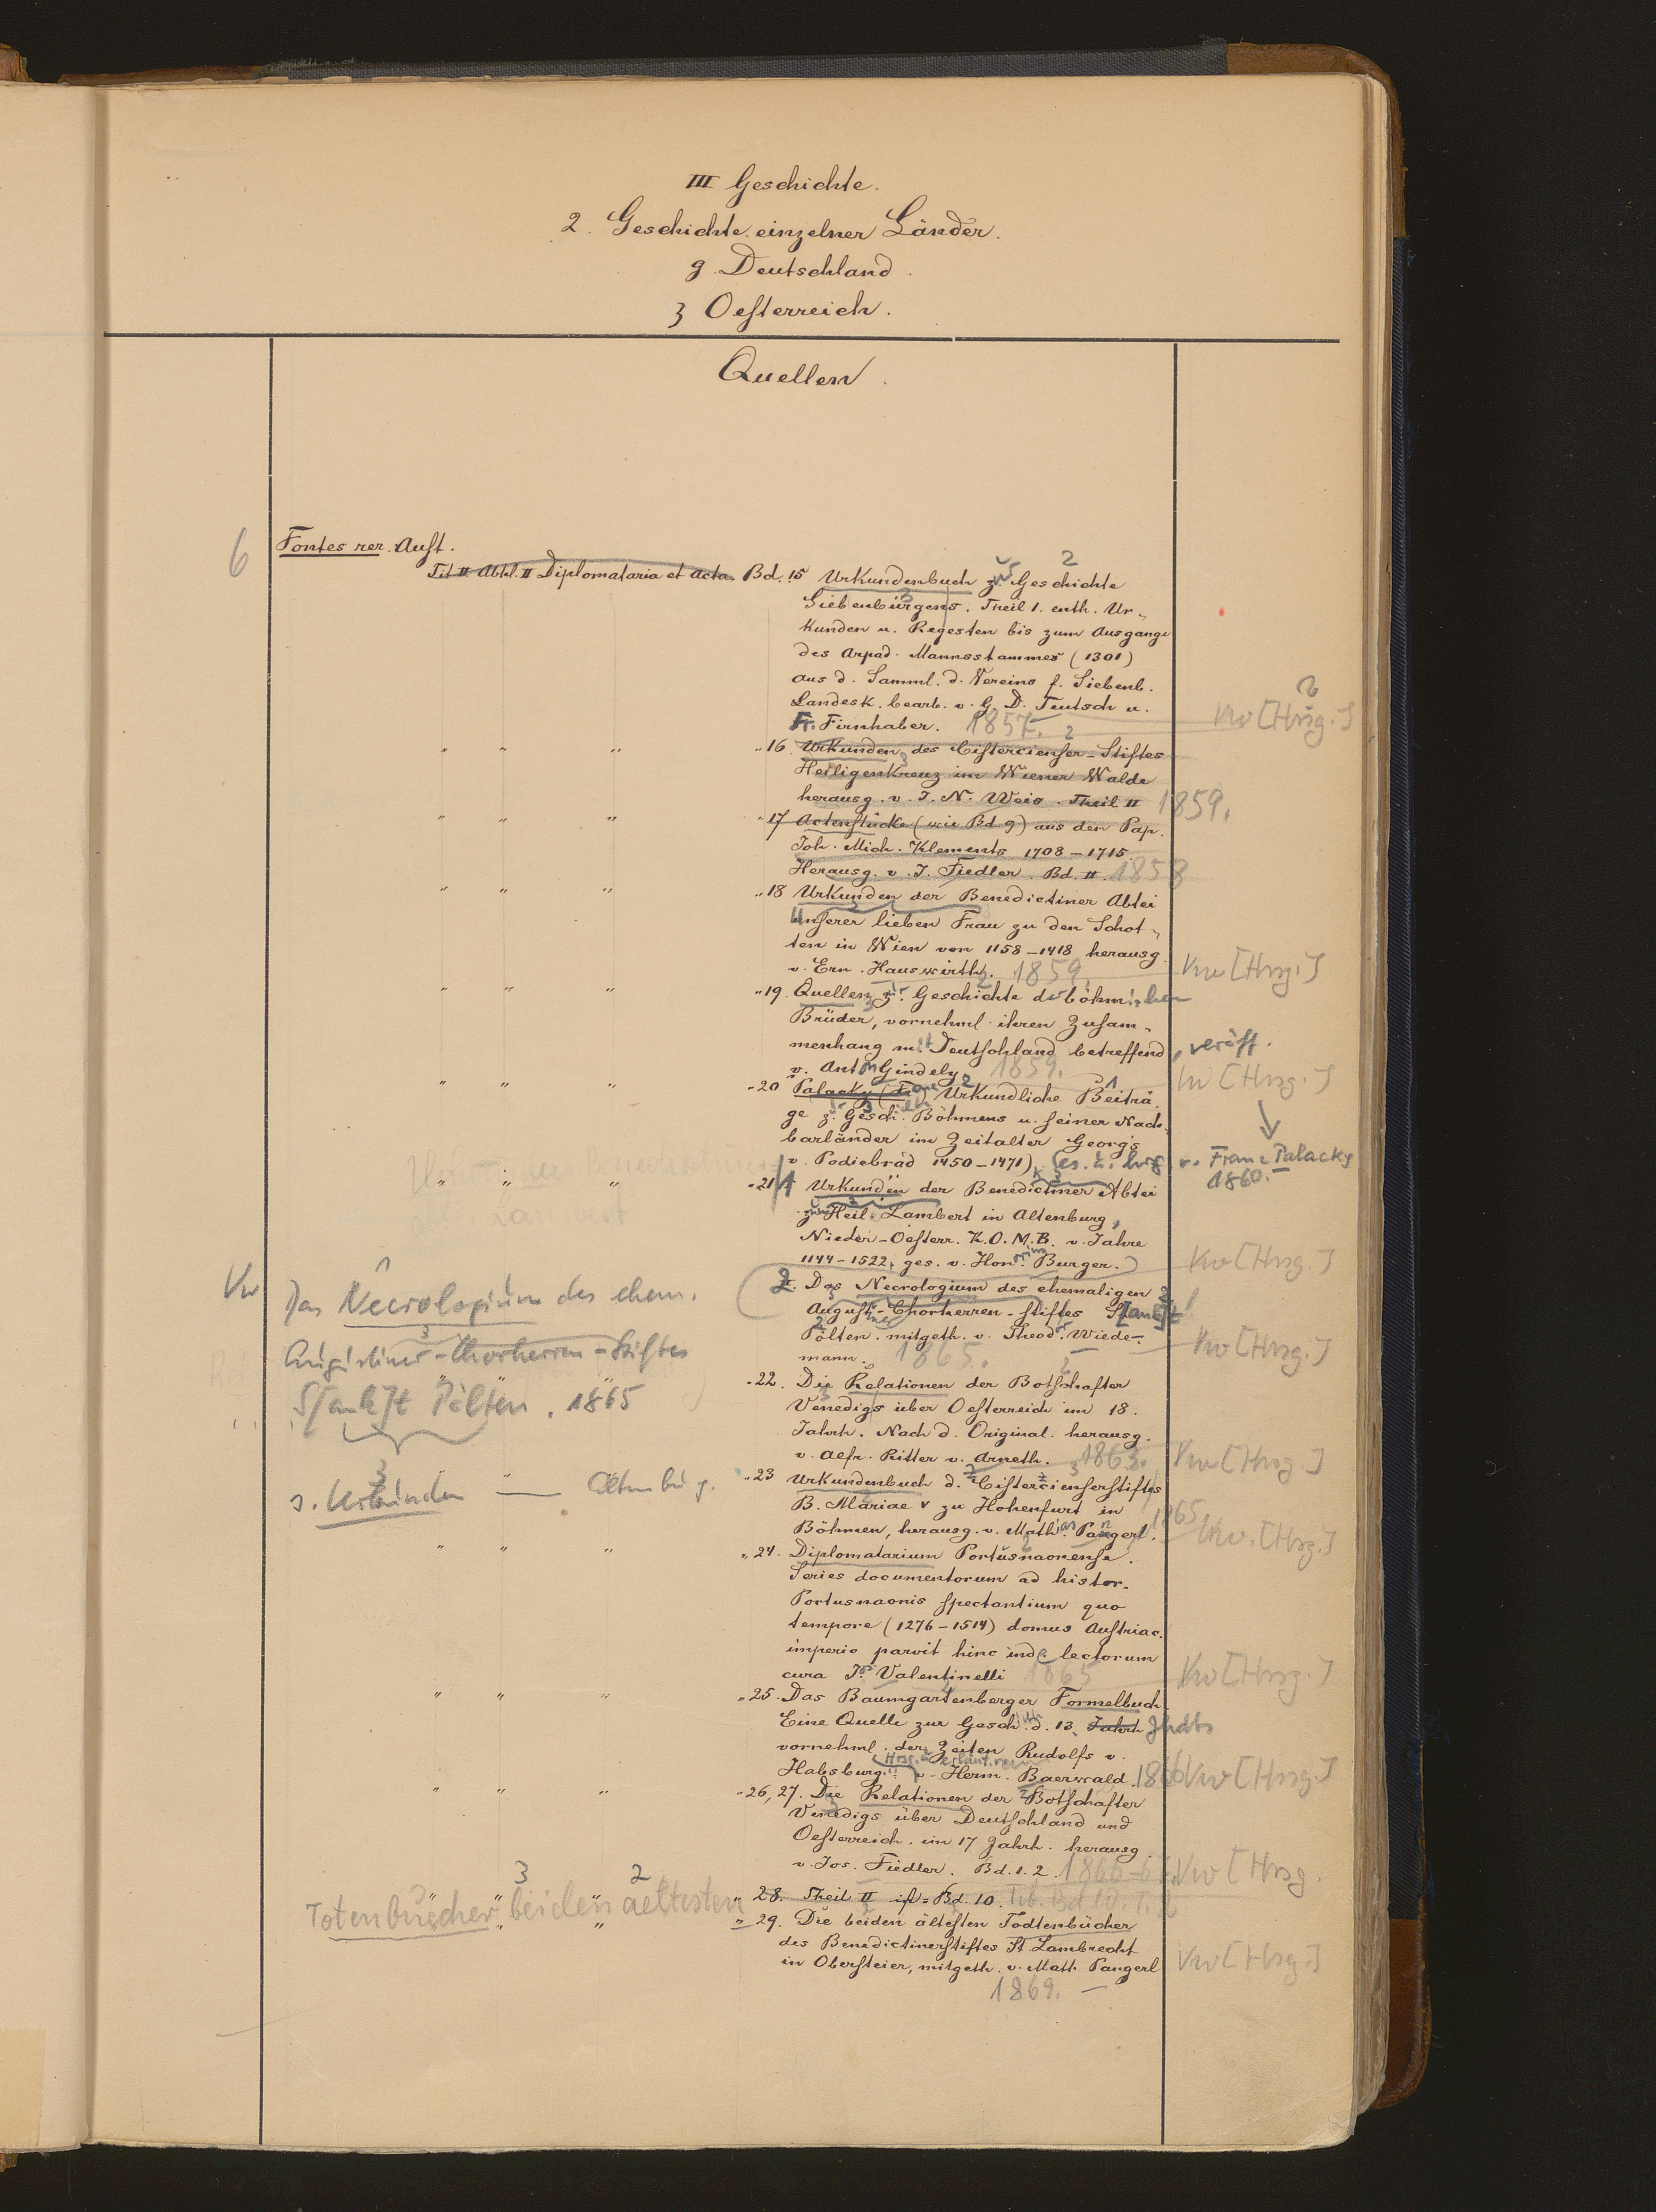 III Geschichte.
2. Geschichte einzelner Länder.
g. Deutschland.
ʒ Oesterreich.
Quellen.
6
Fontes rer. Aust.
Tit II Abthl. II Diplomataria et Acta. Bd. 15 Urkundenbuch z. Geschichte 2
Siebenbürgens. Theil 1. enth. Ur-
kunden u. Regesten bis zum Ausgange
des Arpad. Mannsstammes (1301)
aus d. Samml. d. Vereins f. Siebenb.
Landesk. bearb. v. G. D. Teutsch u.
Fr. Firnhaber. 1857. Vw [Hrsg.]
" " " " 16. Urkunden des Cistercienser-Stiftes
Heiligenkreuz im Wiener Walde
herausg. v. J. N. Weis. Theil II 1859.
" " " " 17 Actenstücke (wie Bd. 9) aus den Pap.
Joh. Mich. Klements 1708-1715.
Herausg. v. J. Fiedler. Bd. II. 1858
" " " " 18 Urkunden der Benedictiner Abtei
Unserer lieben Frau zu den Schot-
ten in Wien von 1158-1418 herausg.
v. Ern. Hauswirth. 1859. Vw [Hrsg.]
" " " " 19. Quellen z. Geschichte der böhmischen
Brüder, vornehml. ihren Zusam-
menhang mit Deutschland betreffend, veröff.
v. Anton Gindely 1859. Vw [Hrsg.]
" " " " 20 Palacky (Fr.) Urkundliche Beiträ-
ge z. Gesch. Böhmens u. seiner Nach-
barländer im Zeitalter Georg's
v. Podiebrad 1450-1471) Ges. u. hrsg. v. Franz Palacky
1860.
" " " " 21 1 Urkunden der Benedictiner Abtei
zum Heil. Lambert in Altenburg,
Nieder-Oesterr. K.O.M.B. v. Jahre
1144-1522, ges. v. Honorius Burger.) Vw [Hrsg.]
2. Das Necrologium des ehemaligen
August.-Chorherren-Stiftes S[ank]t
Pölten. mitgeth. v. Theodor Wiede-
mann. 1865. Vw [Hrsg.]
Vw Das Necrologium des ehem.
Augustiner-Chorherren-Stiftes
S[ank]t Pölten. 1865
s. Urkunden — Altenburg.
" 22. Die Relationen der Botschafter
Venedigs über Oesterreich im 18.
Jahrh. Nach d. Original. herausg.
v. Alfr. Ritter v. Arneth. 1863. Vw [Hrsg.]
" 23 Urkundenbuch d. Cistercienserstiftes
B. Mariae V zu Hohenfurt in
Böhmen, herausg. v. Mathias Pangerl. 1865. Vw. [Hrsg.]
" " " " 24. Diplomatarium Portusnaonense.
Series documentorum ad histor.
Portusnaonis spectantium quo
tempore (1276-1514) domus Austriac.
imperio paruit hinc inde lectorum
cura Jos. Valentinelli 1865 Vw [Hrsg.]
" " " " 25. Das Baumgartenberger Formelbuch
Eine Quelle zur Gesch. d. 13. Jahrh Jhdts
vornehml. der Zeiten Rudolfs v.
Habsburg. Hrsg. u. erläut. v. Herm. Baerwald. 1866 Vw [Hrsg.]
" " " " 26, 27. Die Relationen der Botschafter
Venedigs über Deutschland und
Oesterreich. im 17 Jahrh. herausg.
v. Jos. Fiedler. Bd. 1. 2. 1866-67. Vw [Hrsg.
" " " " 28. Theil II ist = Bd. 10.
Totenbücher beiden aeltesten
3 2
" " " 29. Die beiden ältesten Todtenbücher
des Benedictinerstiftes St. Lambrecht
in Obersteier, mitgeth. v. Math. Pangerl Vw [Hrsg.]
1869.